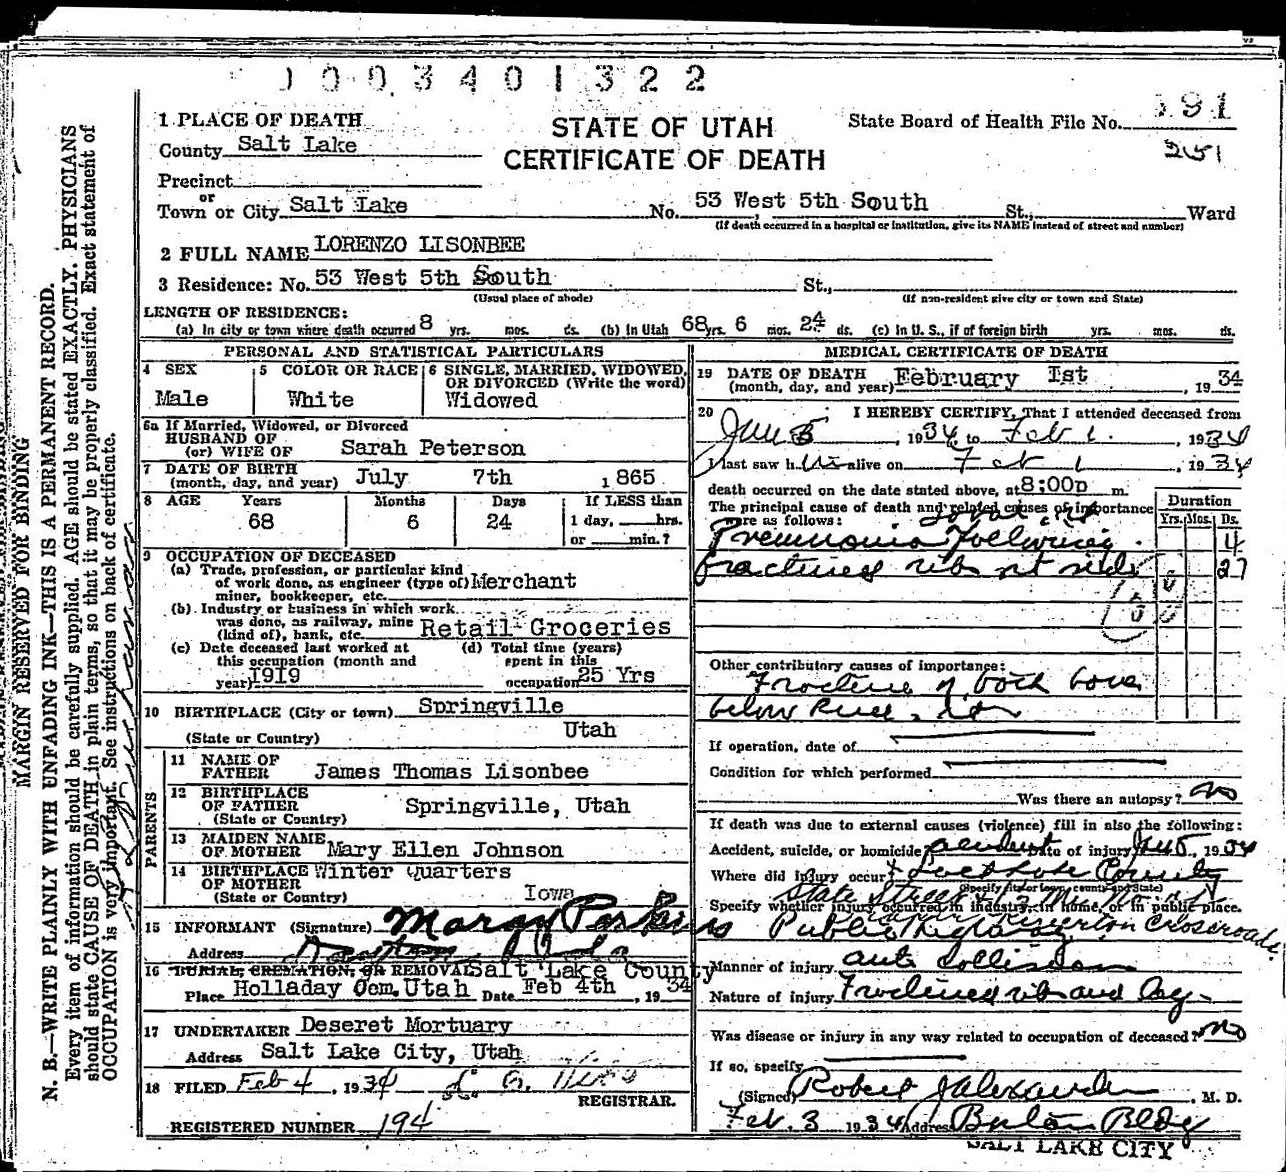 1003401322
STATE OF UTAH
CERTIFICATE OF DEATH
State Board of Health File No. 191
251
1 PLACE OF DEATH
County Salt Lake
Precinct
or
Town or City Salt Lake No. 53 West 5th South St., Ward
(If death occurred in a hospital or institution, give its NAME instead of street and number)
2 FULL NAME LORENZO LISONBEE
3 Residence: No. 53 West 5th South St.,
(Usual place of abode) (If non-resident give city or town and State)
LENGTH OF RESIDENCE:
(a) In city or town where death occurred 8 yrs. mos. ds. (b) In Utah 68 yrs. 6 mos. 24 ds. (c) In U. S., if of foreign birth yrs. mos. ds.
PERSONAL AND STATISTICAL PARTICULARS
4 SEX Male
5 COLOR OR RACE White
6 SINGLE, MARRIED, WIDOWED, OR DIVORCED (Write the word) Widowed
6a If Married, Widowed, or Divorced
HUSBAND OF
(or) WIFE OF Sarah Peterson
7 DATE OF BIRTH
(month, day, and year) July 7th 1865
8 AGE Years Months Days If LESS than
68 6 24 1 day, hrs.
or min.?
9 OCCUPATION OF DECEASED
(a) Trade, profession, or particular kind
of work done, as engineer (type of) Merchant
miner, bookkeeper, etc.
(b) Industry or business in which work
was done, as railway, mine
(kind of), bank, etc. Retail Groceries
(c) Date deceased last worked at
this occupation (month and
year) 1919
(d) Total time (years)
spent in this
occupation 25 Yrs
10 BIRTHPLACE (City or town) Springville
(State or Country) Utah
PARENTS
11 NAME OF
FATHER James Thomas Lisonbee
12 BIRTHPLACE
OF FATHER Springville, Utah
(State or Country)
13 MAIDEN NAME
OF MOTHER Mary Ellen Johnson
14 BIRTHPLACE Winter Quarters
OF MOTHER
(State or Country) Iowa
15 INFORMANT (Signature) Margy Perkins
Address
16 BURIAL, CREMATION, OR REMOVAL Salt Lake County
Place Holladay Cem. Utah Date Feb 4th, 1934
17 UNDERTAKER Deseret Mortuary
Address Salt Lake City, Utah
18 FILED Feb 4, 1934
REGISTRAR.
REGISTERED NUMBER 194
MEDICAL CERTIFICATE OF DEATH
19 DATE OF DEATH
(month, day, and year) February 1st, 1934
20 I HEREBY CERTIFY, That I attended deceased from
Jan 5, 1934, to Feb 1, 1934
I last saw him alive on Feb 1, 1934
death occurred on the date stated above, at 8:00p m.
The principal cause of death and related causes of importance
were as follows: Duration
Yrs. Mos. Ds.
Pneumonia following 4
fractured ribs rt side 27
Other contributory causes of importance:
Fracture of both bones
below knee,
If operation, date of
Condition for which performed
Was there an autopsy? no
If death was due to external causes (violence) fill in also the following:
Accident, suicide, or homicide accident Date of injury Jan 5, 1934
Where did injury occur? Salt Lake County
(Specify city or town, county and State)
State Street
Specify whether injury occurred in industry, in home, or in public place.
Public Highway Riverton Crossroads.
Manner of injury auto Collision
Nature of injury Fractured ribs and leg
Was disease or injury in any way related to occupation of deceased? no
If so, specify
(Signed) Robert J Alexander, M. D.
Feb. 3 1934 Address Boston Bldg
SALT LAKE CITY
MARGIN RESERVED FOR BINDING
N. B.—WRITE PLAINLY WITH UNFADING INK—THIS IS A PERMANENT RECORD.
Every item of information should be carefully supplied. AGE should be stated EXACTLY. PHYSICIANS
should state CAUSE OF DEATH in plain terms, so that it may be properly classified. Exact statement of
OCCUPATION is very important. See instructions on back of certificate.